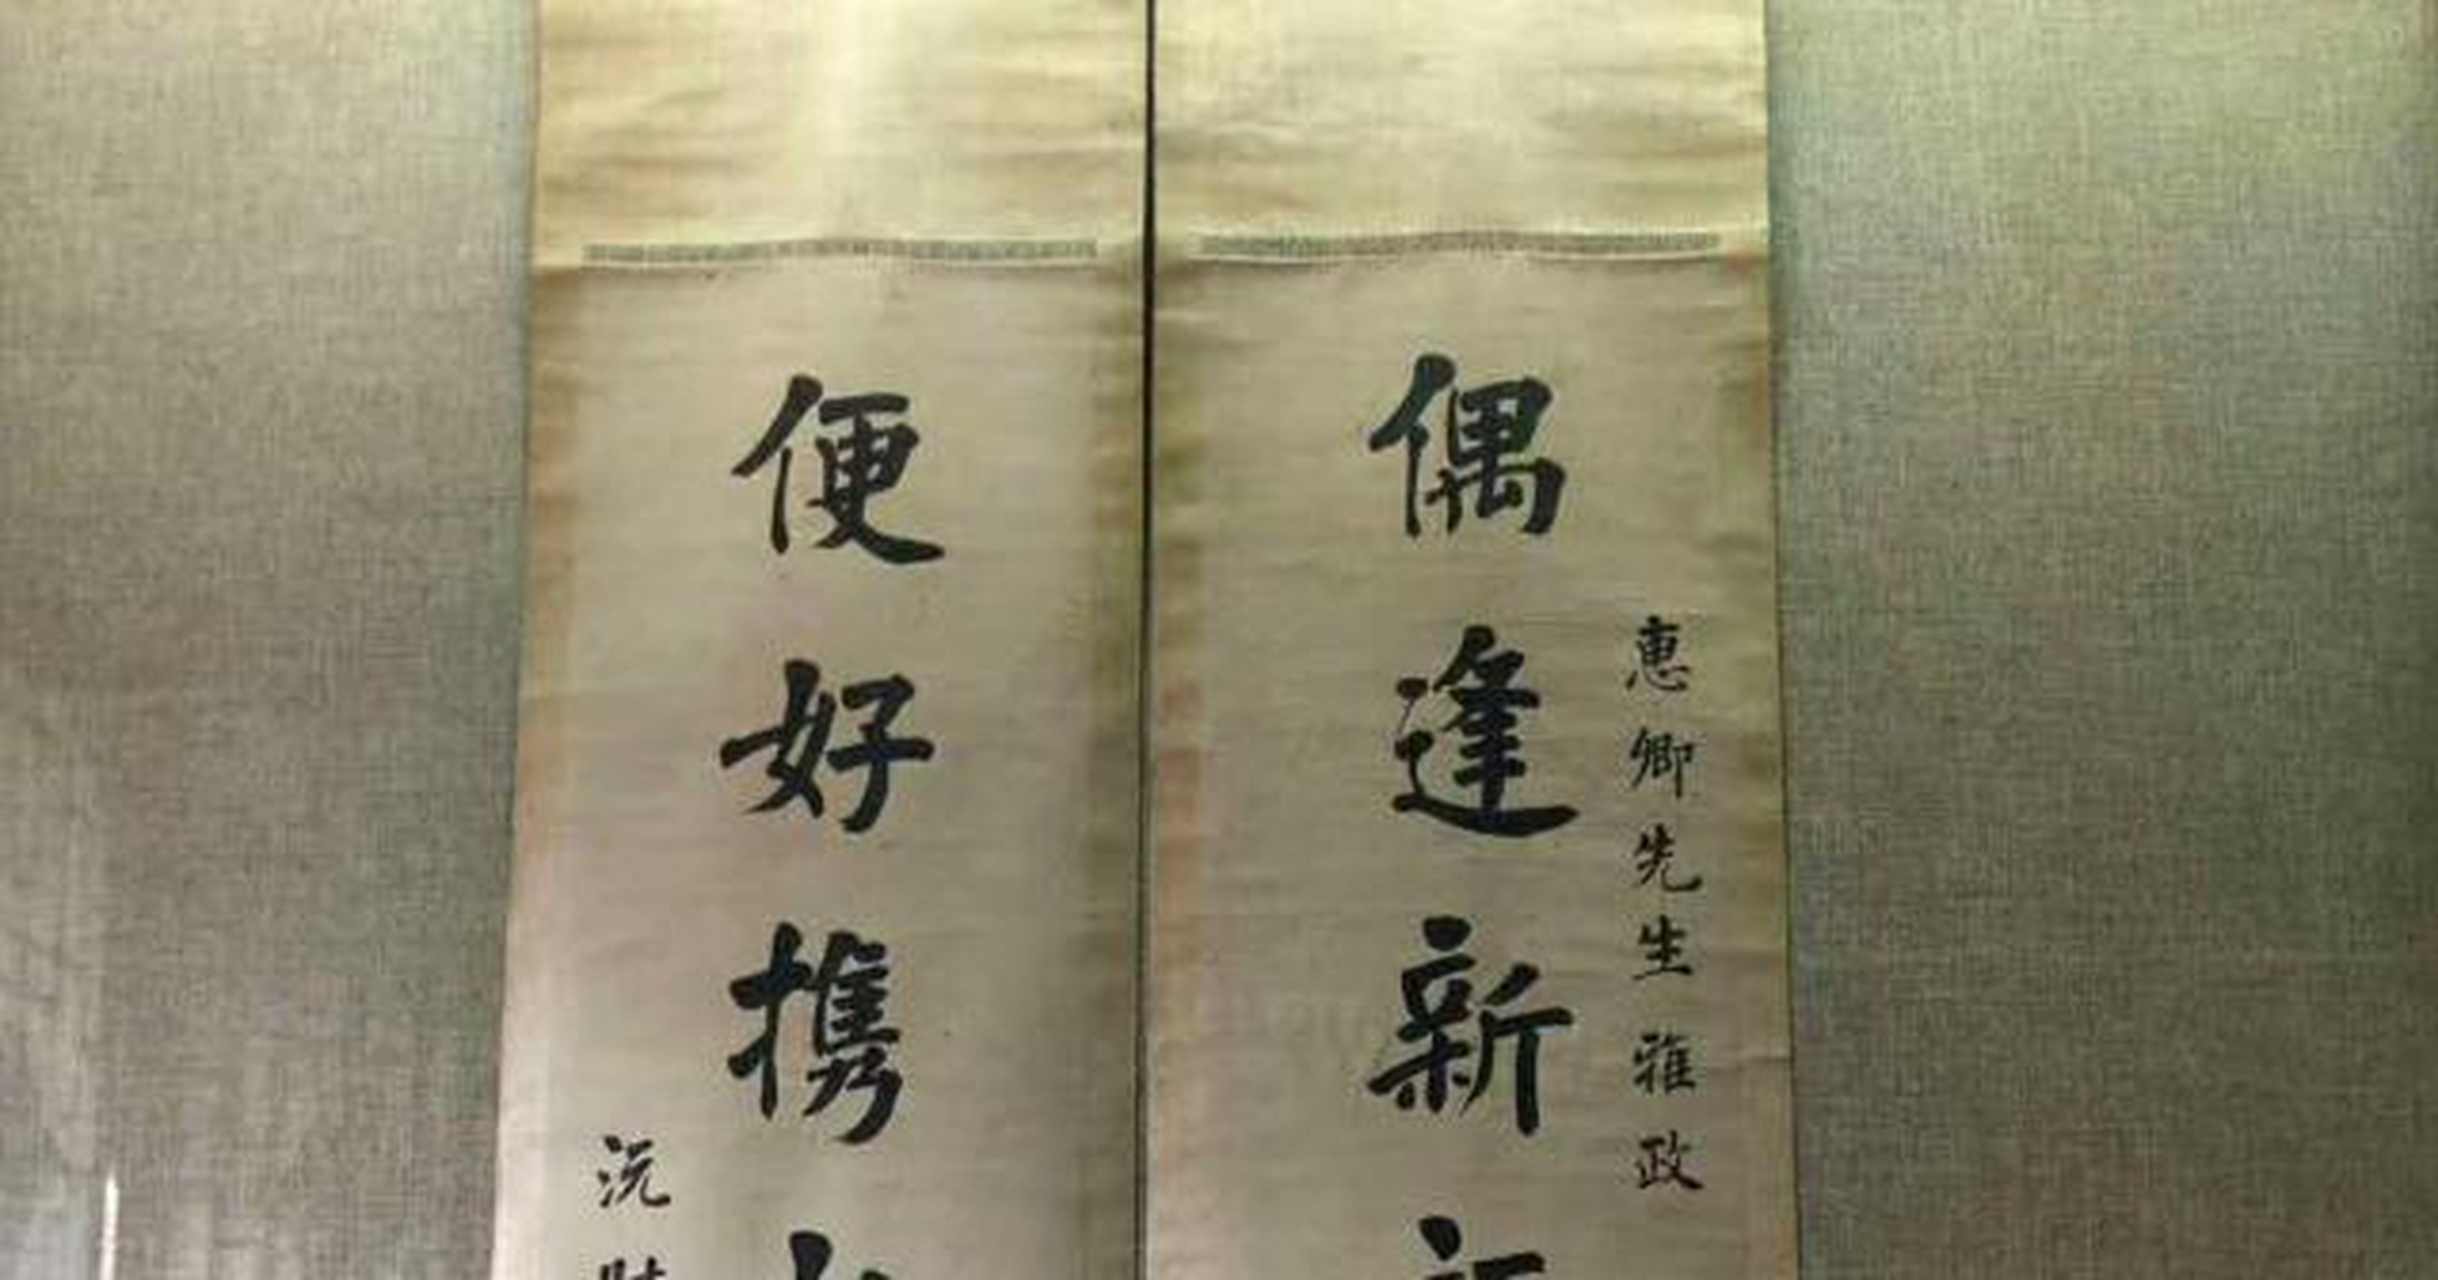 惠卿先生雅政
偶逢新
便好携
沅